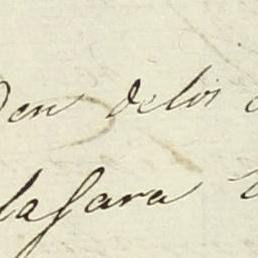 den delos
la para